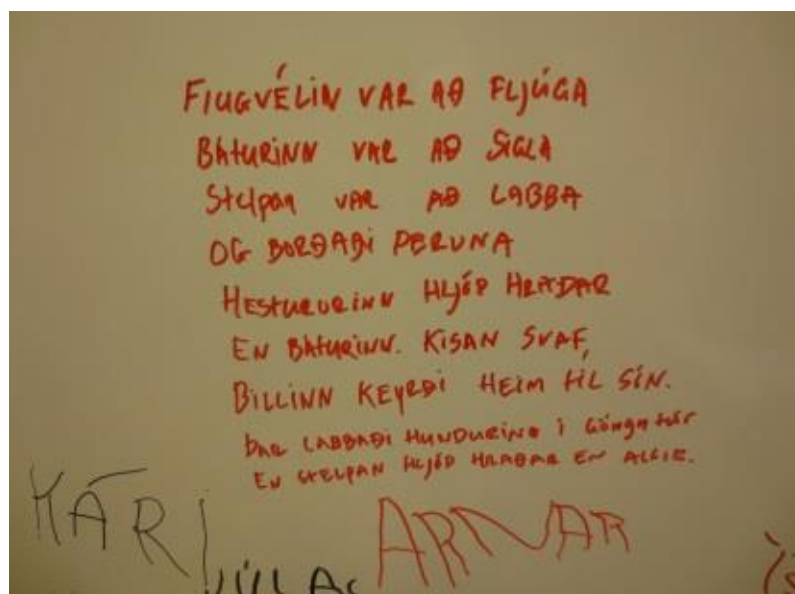 FlUGVÉLIN VAR AÐ FLJÚGA
BÁtURINN VAR AÐ SIGLA
StElpan VAR AÐ LABBA
OG BORÐAÐI PERUNA
HEStURURINN HLJÓP HRAÐAR
EN BÁtURINN. KISAN SVAF,
BILLINN KEYRÐI HEIM tIL SÍN.
ÞAR LABBAÐI HUNDURINN Í GÖngutúr
EN StELPAN HLJÓP HRAÐAR EN ALLIR.
KÁRI
ARNAR